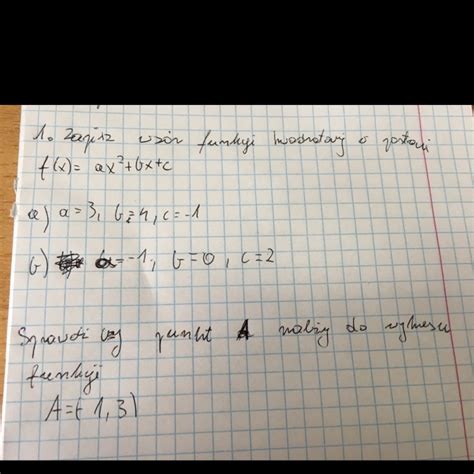 1. Zapisz wzór funkcji kwadratowej o postaci
f(x)= ax²+bx+c
a) a=3, b=4, c=-1
b) a=-1, b=0, c=2
Sprawdź czy punkt A należy do wykresu
funkcji
A=(-1,3)